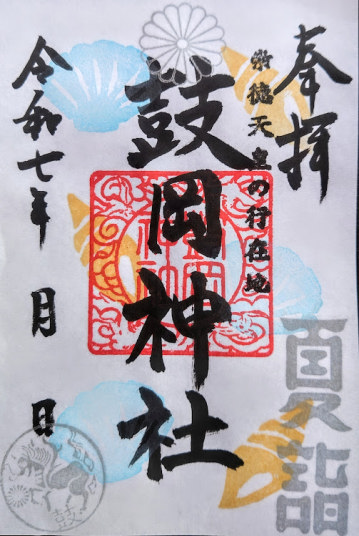 奉拝
崇徳天皇の行在地
鼓岡神社
令和七年 月 日
夏詣
鼓